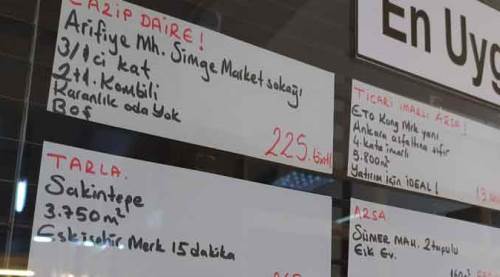 CAZİP DAİRE!
Arifiye Mh. Simge Market sokağı
3/1ci kat
2+1. Kombili
Karanlık oda Yok
Boş
225.
TARLA.
Sakintepe
3.750m²
Eskişehir Merk 15 dakika
En Uyg
TİCARİ İMARLI ARSA!
ETO Kong Mrk yanı
Ankara asfaltına sıfır
4. kata imarlı
5.800m²
Yatırım için İDEAL!
ARSA.
SÜMER MAH. 2 tapulu
Eik Ev.